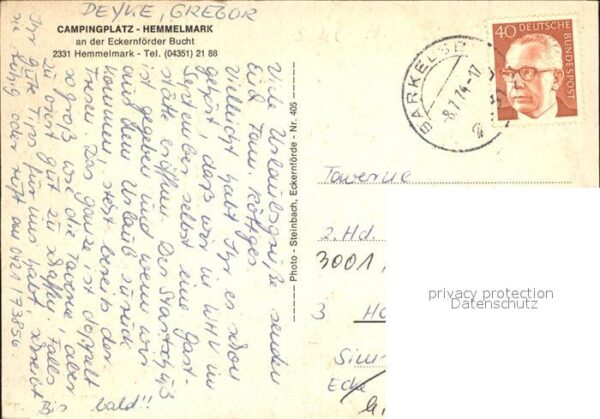 DEYKE, GREGOR
CAMPINGPLATZ - HEMMELMARK
an der Eckernförder Bucht
2331 Hemmelmark - Tel. (04351) 21 88
Viele Urlaubsgrüße senden
Euch Fam. Röttger.
Vielleicht habt Ihr es schon
gehört, daß wir in WHV im
September selbst eine Gast-
stätte eröffnen. Der Startschuß
ist gegeben und wenn wir
aus dem Urlaub zurück
kommen, steht bereits der
Tresen. Das ganze ist doppelt
so groß wie die Taverne, aber
zu zweit gut zu schaffen. Falls
Ihr gute Tips für uns habt, schreibt
sie ruhig oder ruft an 0421/73856.
Bis bald!!
Photo - Steinbach, Eckernförde - Nr. 405
BARKELSBY
8.7.74-17
40
DEUTSCHE
BUNDESPOST
Taverne
2. Hd.
3001
3 Ha
Sim
Ecke
privacy protection
Datenschutz